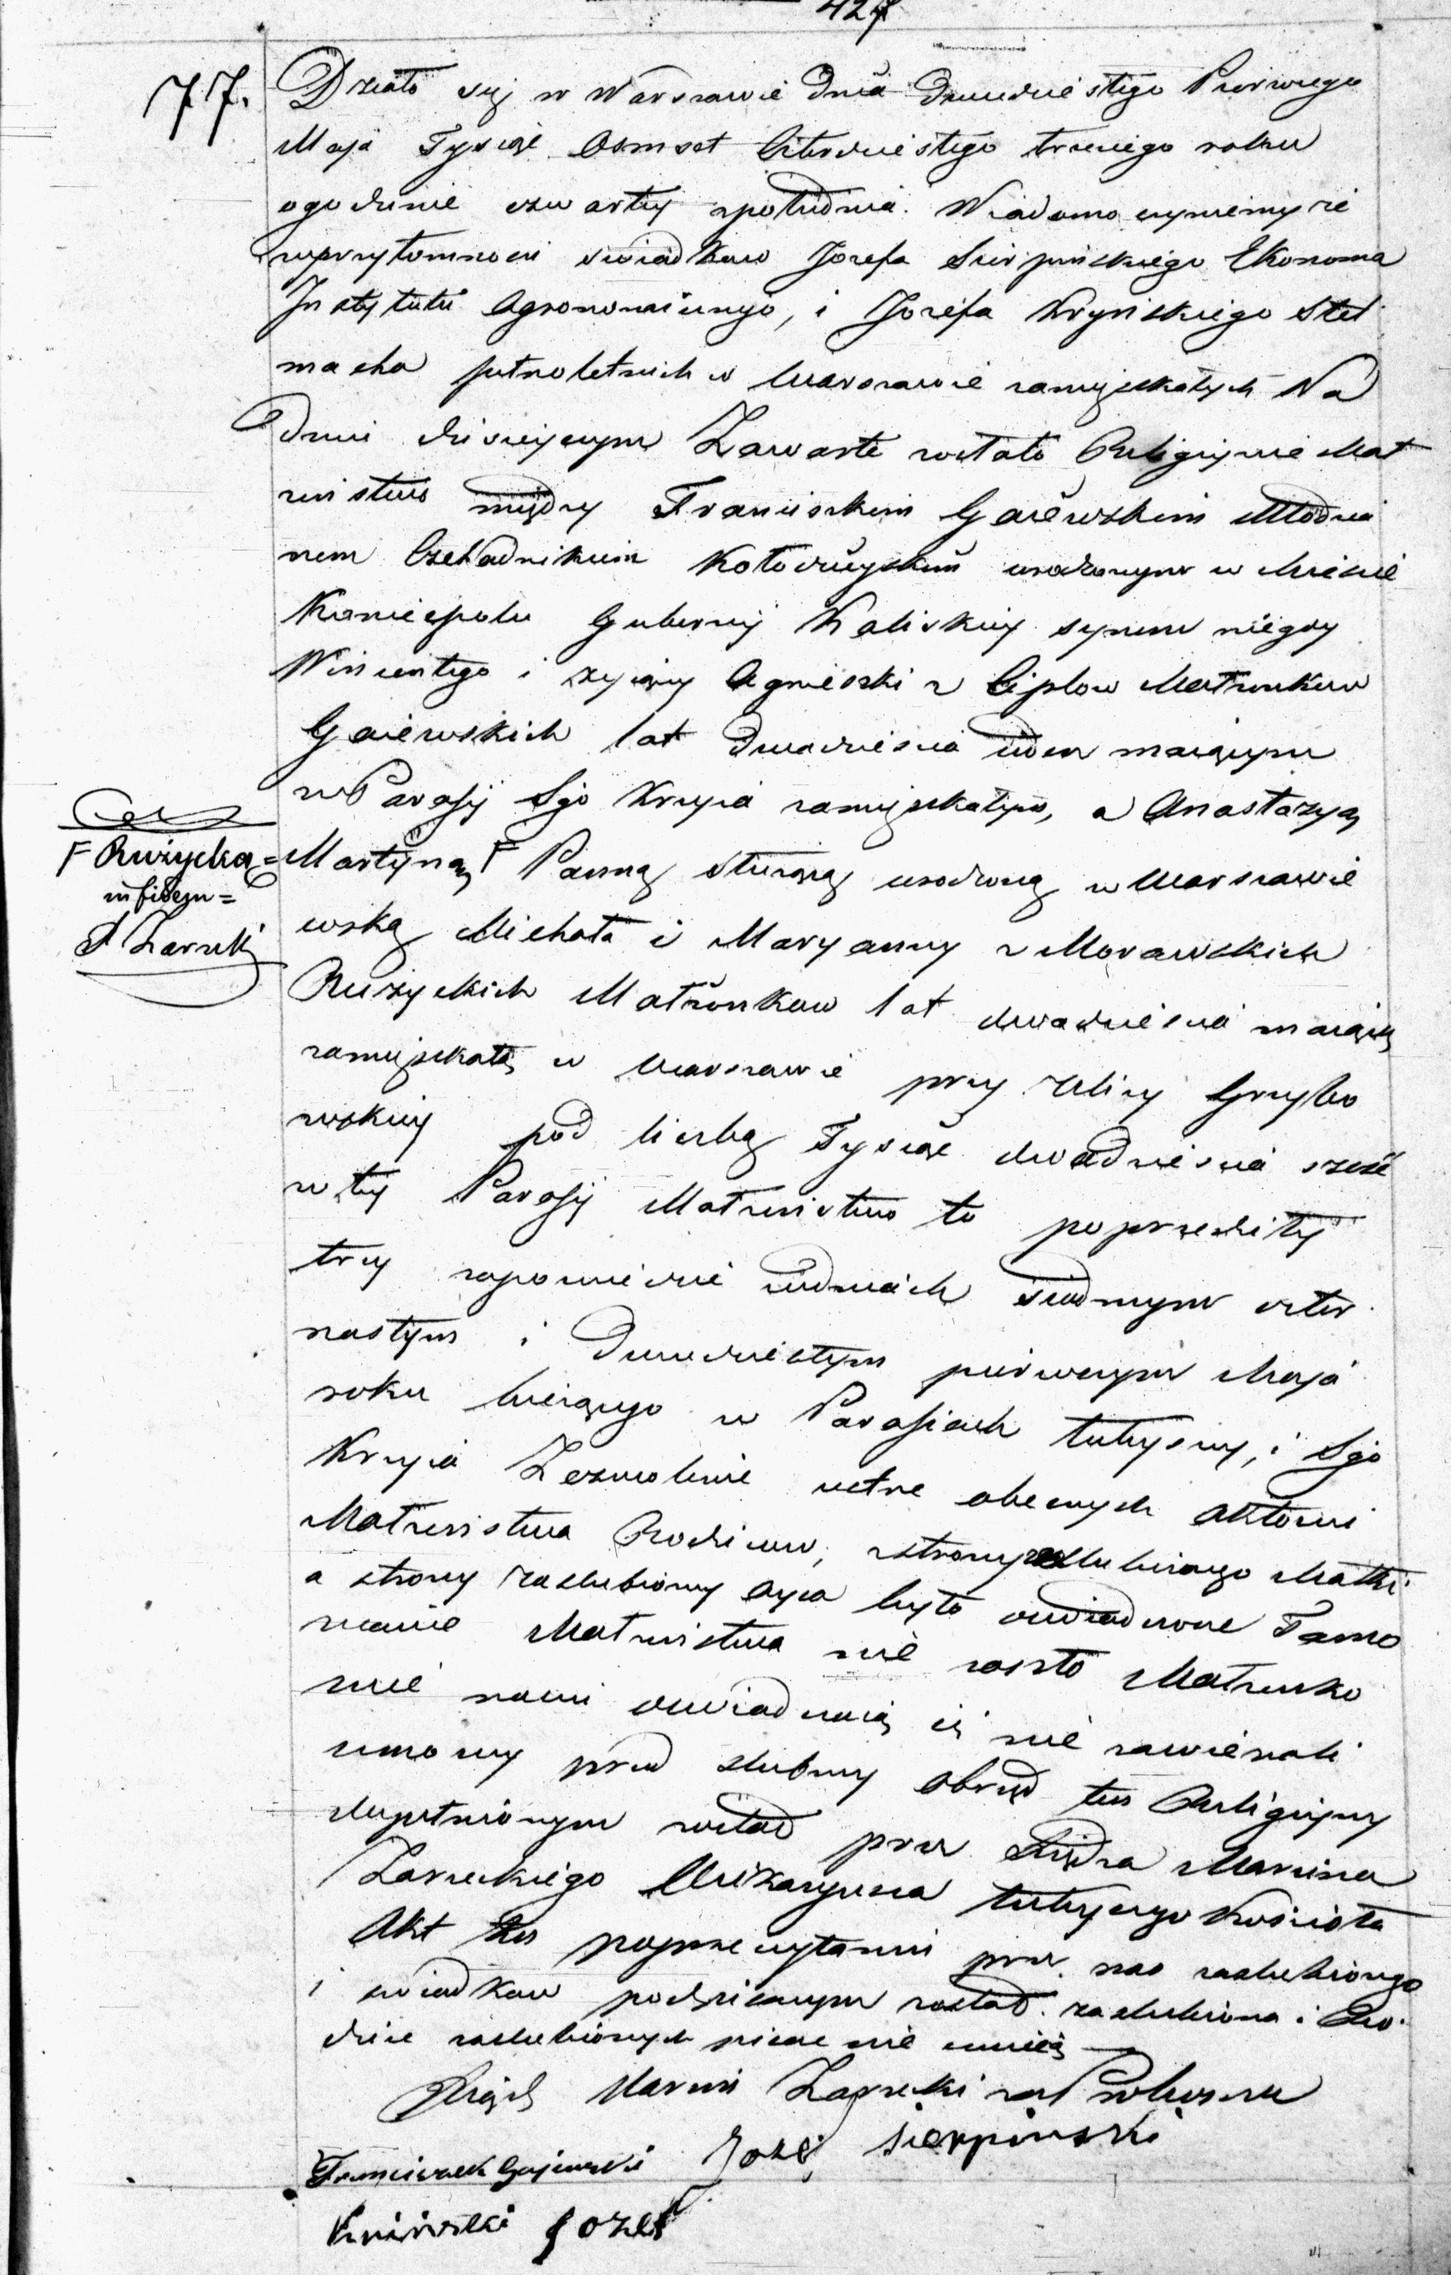 427
77.
Działo się w Warszawie dnia dwudziestego Pierwszego
Maja Tysiąc Osmset Czterdziestego trzeciego roku
ogodzinie czwartey zpołudnia. Wiadomo czyniemy że
wprzytomnosci swiadkow Jozefa Sierpinskiego Ekonoma
Instytutu Agronomicznego, i Jozefa Stel
macha pełnoletnich w Warszawie zamięszkałych Na
dniu dzisieyszym Zawarte zostało Religijne Mał
zeństwo między Franciszkiem Gaiewskim Młodzia
nem Czeladnikiem Kołodzieyskim urodzonym w Miescie
Koniecpolu Gubernij Kaliskiey synem niegdy
Wincentego i żyiącey Agnieszki z Ciplow Małżonkow
Gaiewskich lat dwadziescia ieden maiącym
w Parafij Sgo Krzyża zamięszkałym, a Anastazyą
Martyną F Panną służącą urodzoną w Warszawie
F Ruzycką =
in fidem =
X Zarzecki
corką Michała i Maryanny z Morawskich
Ruzyckich Małżonkow lat dwadziescia maiącą
zamięszkałą w Warszawie przy Ulicy Grzybo
wskiey pod liczbą Tysiąc dwadziescia szesć
w tey Parafij Małzeństwo to poprzedziły
trzy zapowiedzie w dniach siodmym czter
nastym i Dwudziestym pierwszym Maja
roku bieżącego w Parafiach tutejszey, i Sgo
Krzyża Zezwolenie ustne obecnych Aktowi
Małzeństwa Rodzicow, z strony zaslubionego Matki
a strony zaslubioney Oyca było oswiadczone Tamo
wanie Małzeństwa nie zaszło Małżonko
wie nowi oswiadczaią iż nie zawierali
umowy przed slubney Obrzęd ten Religijny
dopełnionym został przez Xiędza Marcina
Zarzeckiego Wikaryusza tutejszego Kosciola
Akt ten poprzeczytaniu przez nas zaslubionego
i swiadkow podpisanym został. zaslubiona i Ro
dzice zaslubionych pisac nie umieią
Xiądz Marcin Zarzecki za Proboszcza
Franciszek Gajewski Jozef Sierpinski
Jozef